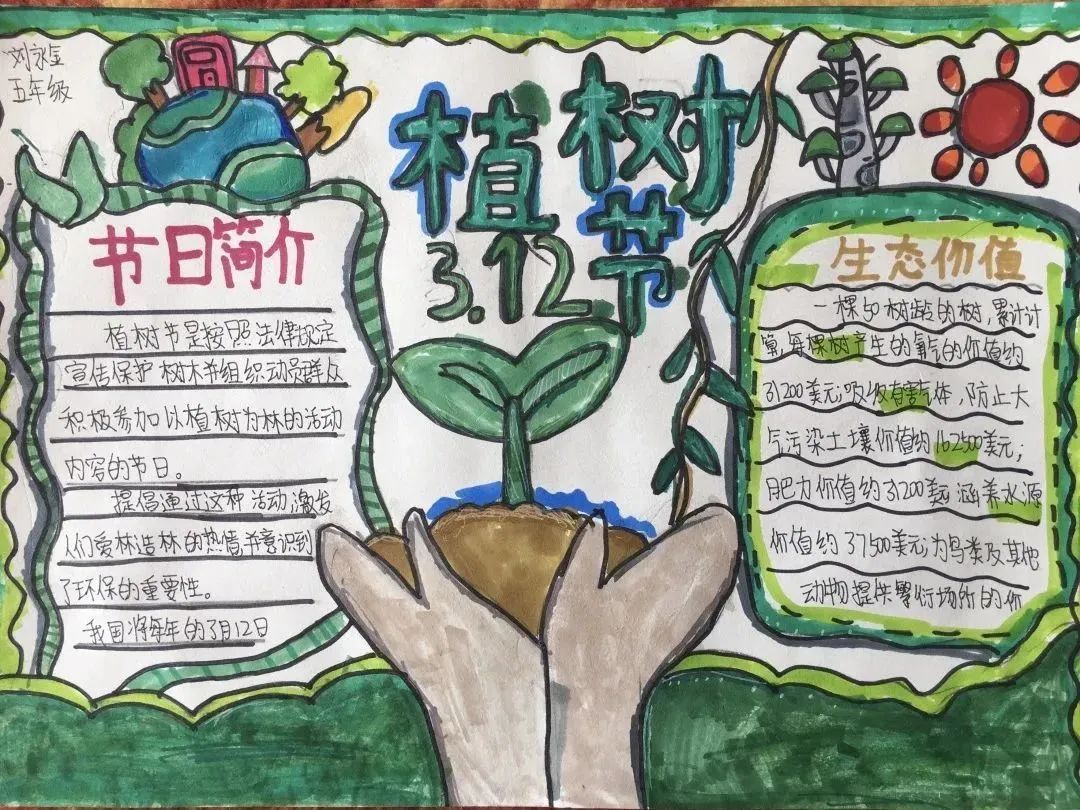 刘家宝
五年级
植树节
3.12
节日简介
植树节是按照法律规定
宣传保护树木并组织动员群众
积极参加以植树为林的活动
内容的节日。
提倡通过这种活动,激发
人们爱林造林的热情并意识到
了环保的重要性。
我国将每年的3月12日
生态价值
一棵50树龄的树,累计计
算,每棵树产生的氧气的价值约
31200美元;吸收有害气体,防止大
气污染土壤价值约162500美元;
肥力价值约31200美元 涵养水源
价值约37500美元;为鸟类及其他
动物提供繁衍场所的价